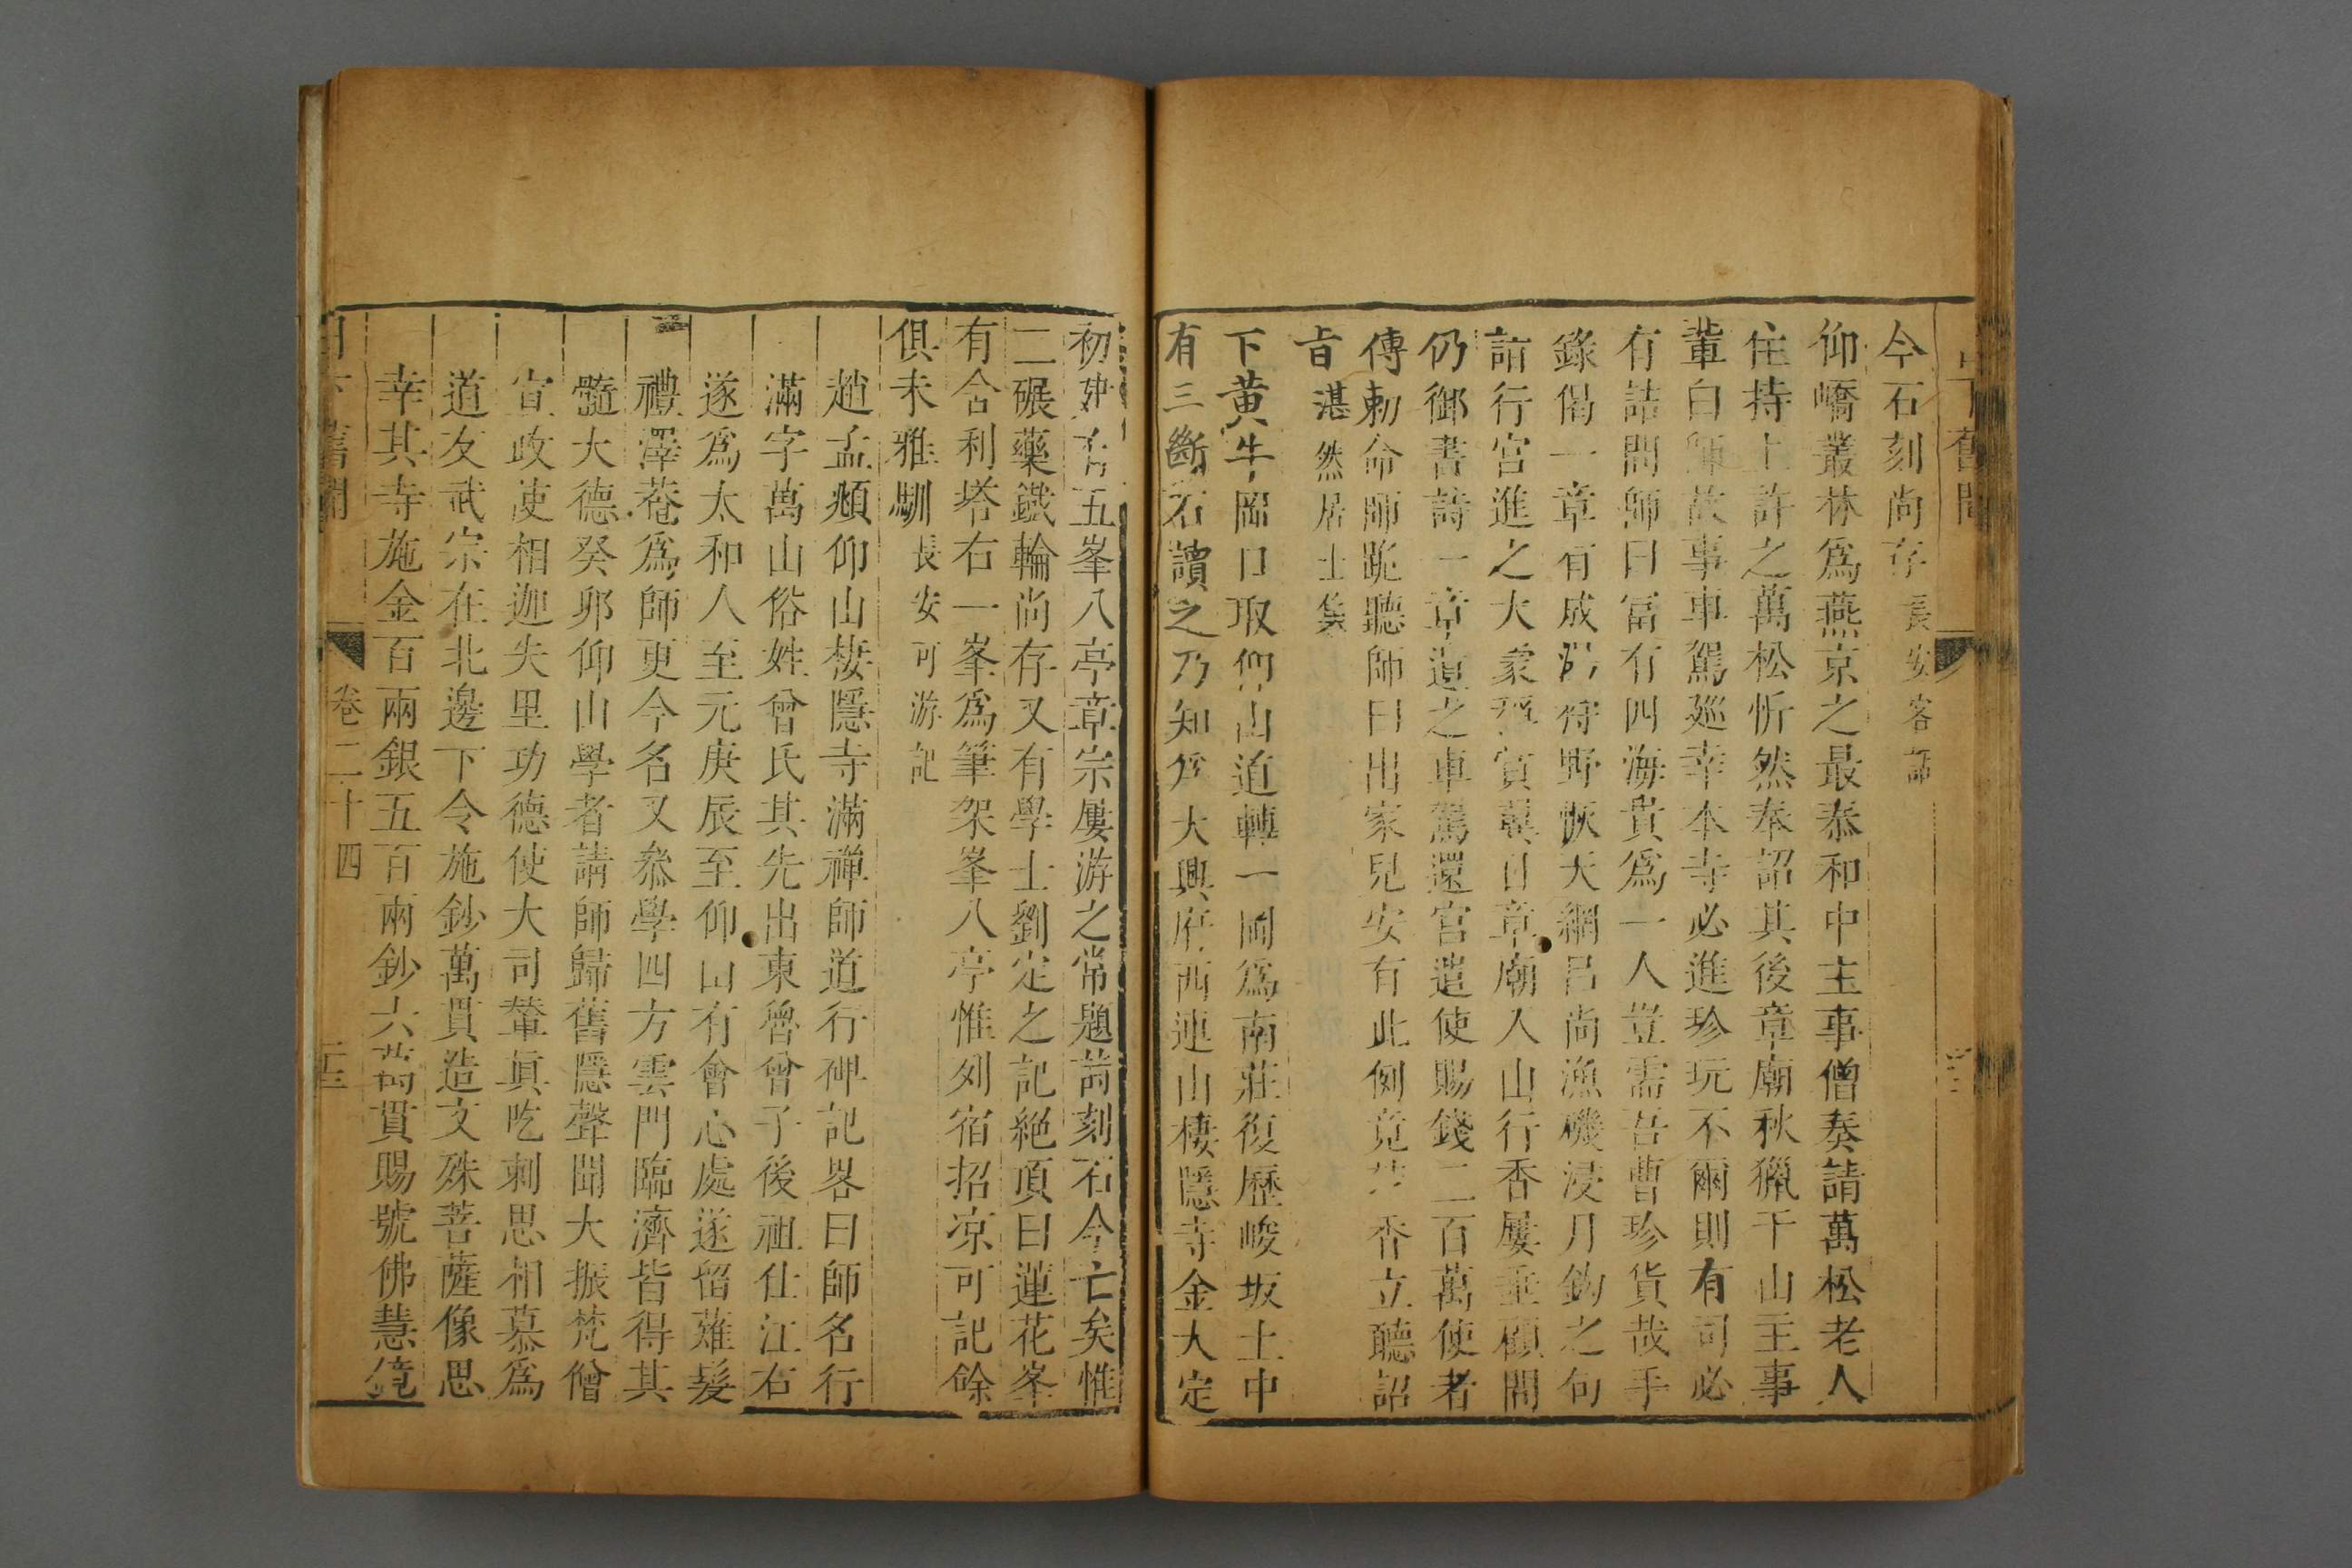 下舊聞
今石刻尚存長安客話
仰嶠叢林為燕京之最泰和中主事僧奏請萬松老人
住持上許之萬松忻然奉詔其後章廟秋獵于山主事
輩白師故事車駕廵幸本寺必進珍玩不爾則有司必
有詰問師曰富有四海貴爲一人豈需吾曹珍貨哉手
錄偈一章有成湯狩野恢天網呂尚漁磯浸月鈎之句
詣行宮進之大蒙稱賞翼日章廟入山行香屢垂顧問
仍御書詩一章遺之車駕還宮遣使賜錢二百萬使者
傳勅命師跪聽師曰出家兒安有此例竟焚香立聽詔
旨湛然居士集
下黃牛岡口取仰山道轉一岡爲南莊復歷峻坂土中
有三斷石讀之乃知爲大興府西連山棲隱寺金大定
初建有五峯八亭章宗屢游之常題詩刻石今亡矣惟
二碾藥鐵輪尚存又有學士劉定之記絕頂曰蓮花峯
有舍利塔右一峯爲筆架峯八亭惟列宿招凉可記餘
俱未雅馴長安可游記
趙孟頫仰山棲隱寺滿禪師道行碑記畧曰師名行
滿字萬山俗姓曾氏其先出東魯曾子後祖仕江右
遂爲太和人至元庚辰至仰山有會心處遂留薙髮
禮澤菴爲師更今名又叅學四方雲門臨濟皆得其
髓大德癸卯仰山學者請師歸舊隱聲聞大振梵僧
宣政使相迦失里功德使大司輦眞吃剌思相慕爲
道友武宗在北邊下令施鈔萬貫造文殊菩薩像思
幸其寺施金百兩銀五百兩鈔六萬貫賜號佛慧鏡
日下舊聞 卷二十四 二十三